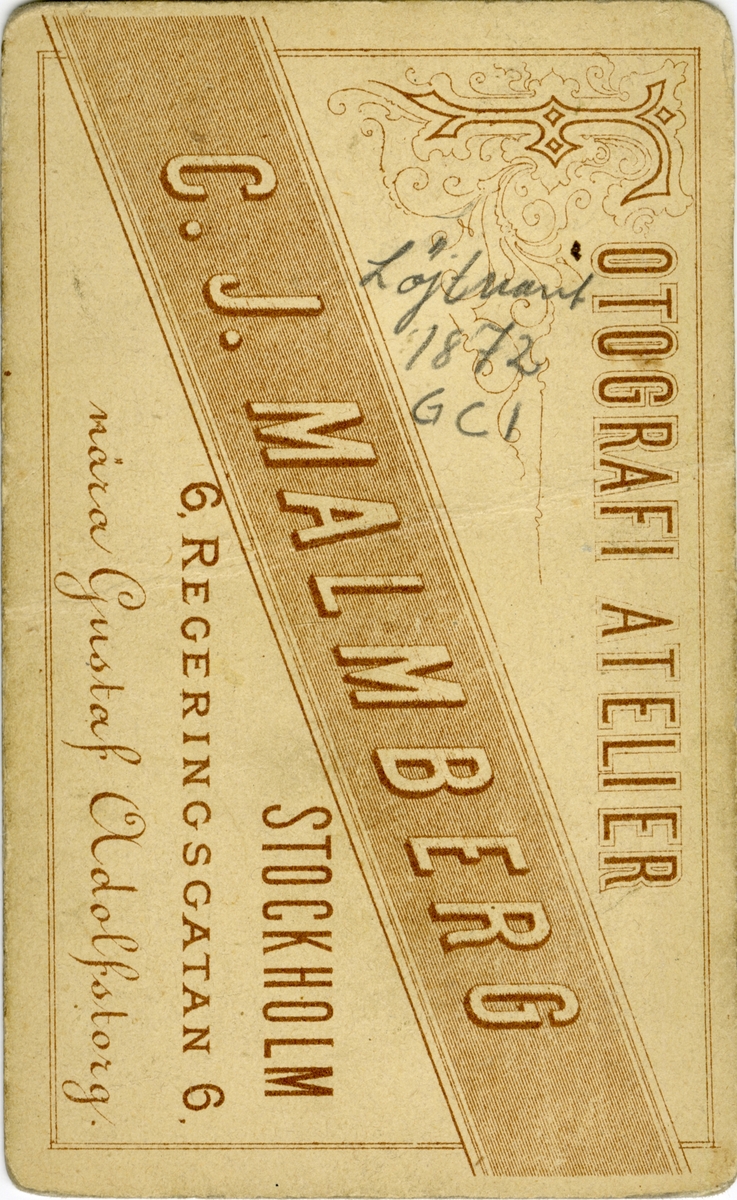 FOTOGRAFI ATELIER
Löjtnant
1872
GCI
C. J. MALMBERG
STOCKHOLM
6, REGERINGSGATAN 6,
nära Gustaf Adolfstorg.